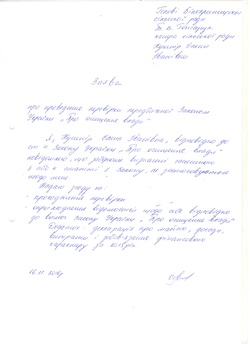 Голові Білокриницької
сільської ради
кухаря сільської ради
Кушнір Олени
Іванівни
Заява
про проведення перевірки, передбаченої Законом
України „Про очищення влади"
Я, Кушнір Олена Іванівна, відповідно до
ст. 4 Закону України „Про очищення влади"
повідомляю, що заборони, визначені частиною
3 або 4 статті 1 Закону, не застосовуються
щодо мене.
Надаю згоду на:
- проходження перевірки
- оприлюднення відомостей щодо себе відповідно
до вимог Закону України „Про очищення влади"
Додаток: декларація про майно, доходи,
витрати і зобов'язання фінансового
характеру за